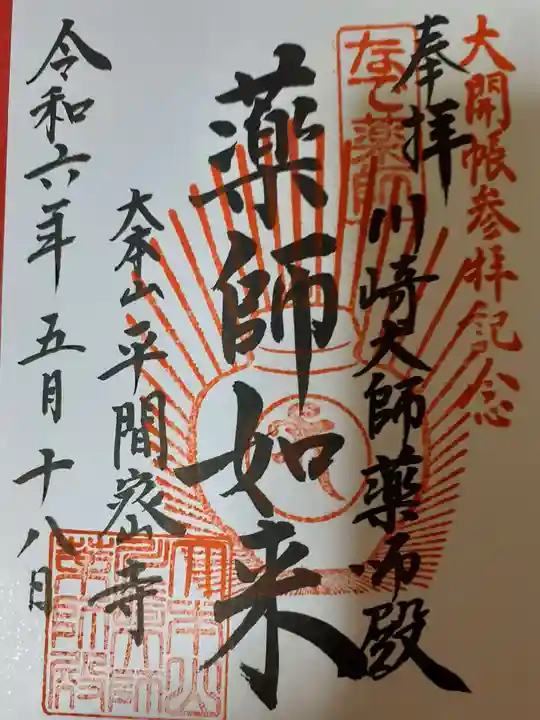 大開帳参拝記念
奉拝
川崎大師薬師殿
なで薬師
薬師如来
大本山平間寺
令和六年五月十八日